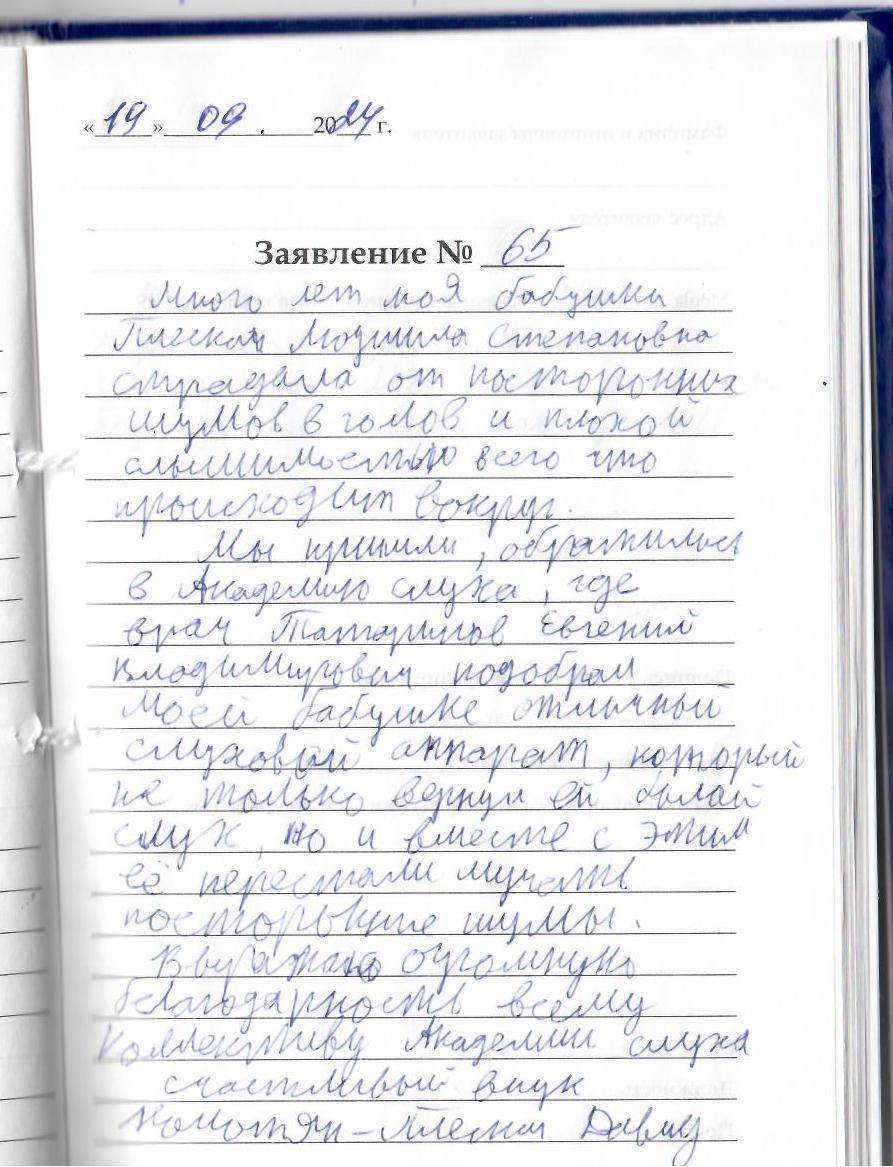 «19» 09. 2024 г.
Заявление № 65
Много лет моя бабушка
Плеская Людмила Степановна
страдала от посторонних
шумов в голов и плохой
слышимостью всего что
происходит вокруг.
Мы пришли, обратились
в Академию слуха, где
врач Татаринов Евгений
Владимирович подобрал
моей бабушке отличный
слуховой аппарат, который
не только вернул ей былой
слух, но и вместе с этим
её перестали мучать
посторонние шумы.
Выражаю огромную
благодарность всему
коллективу Академии слуха
счастливый внук